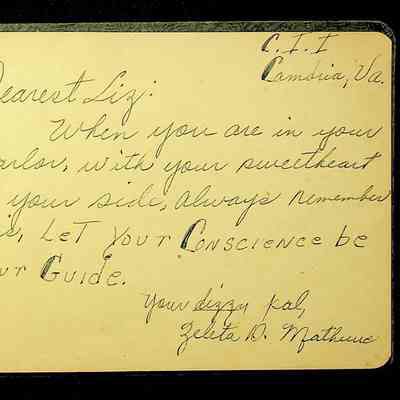 C. I. I
Cambria, Va.
earest Liz:
When you are in your
arlor, with your sweetheart
your side, always remember
is, Let Your Conscience be
ur Guide.
Your dizzy pal,
Zeleta D.